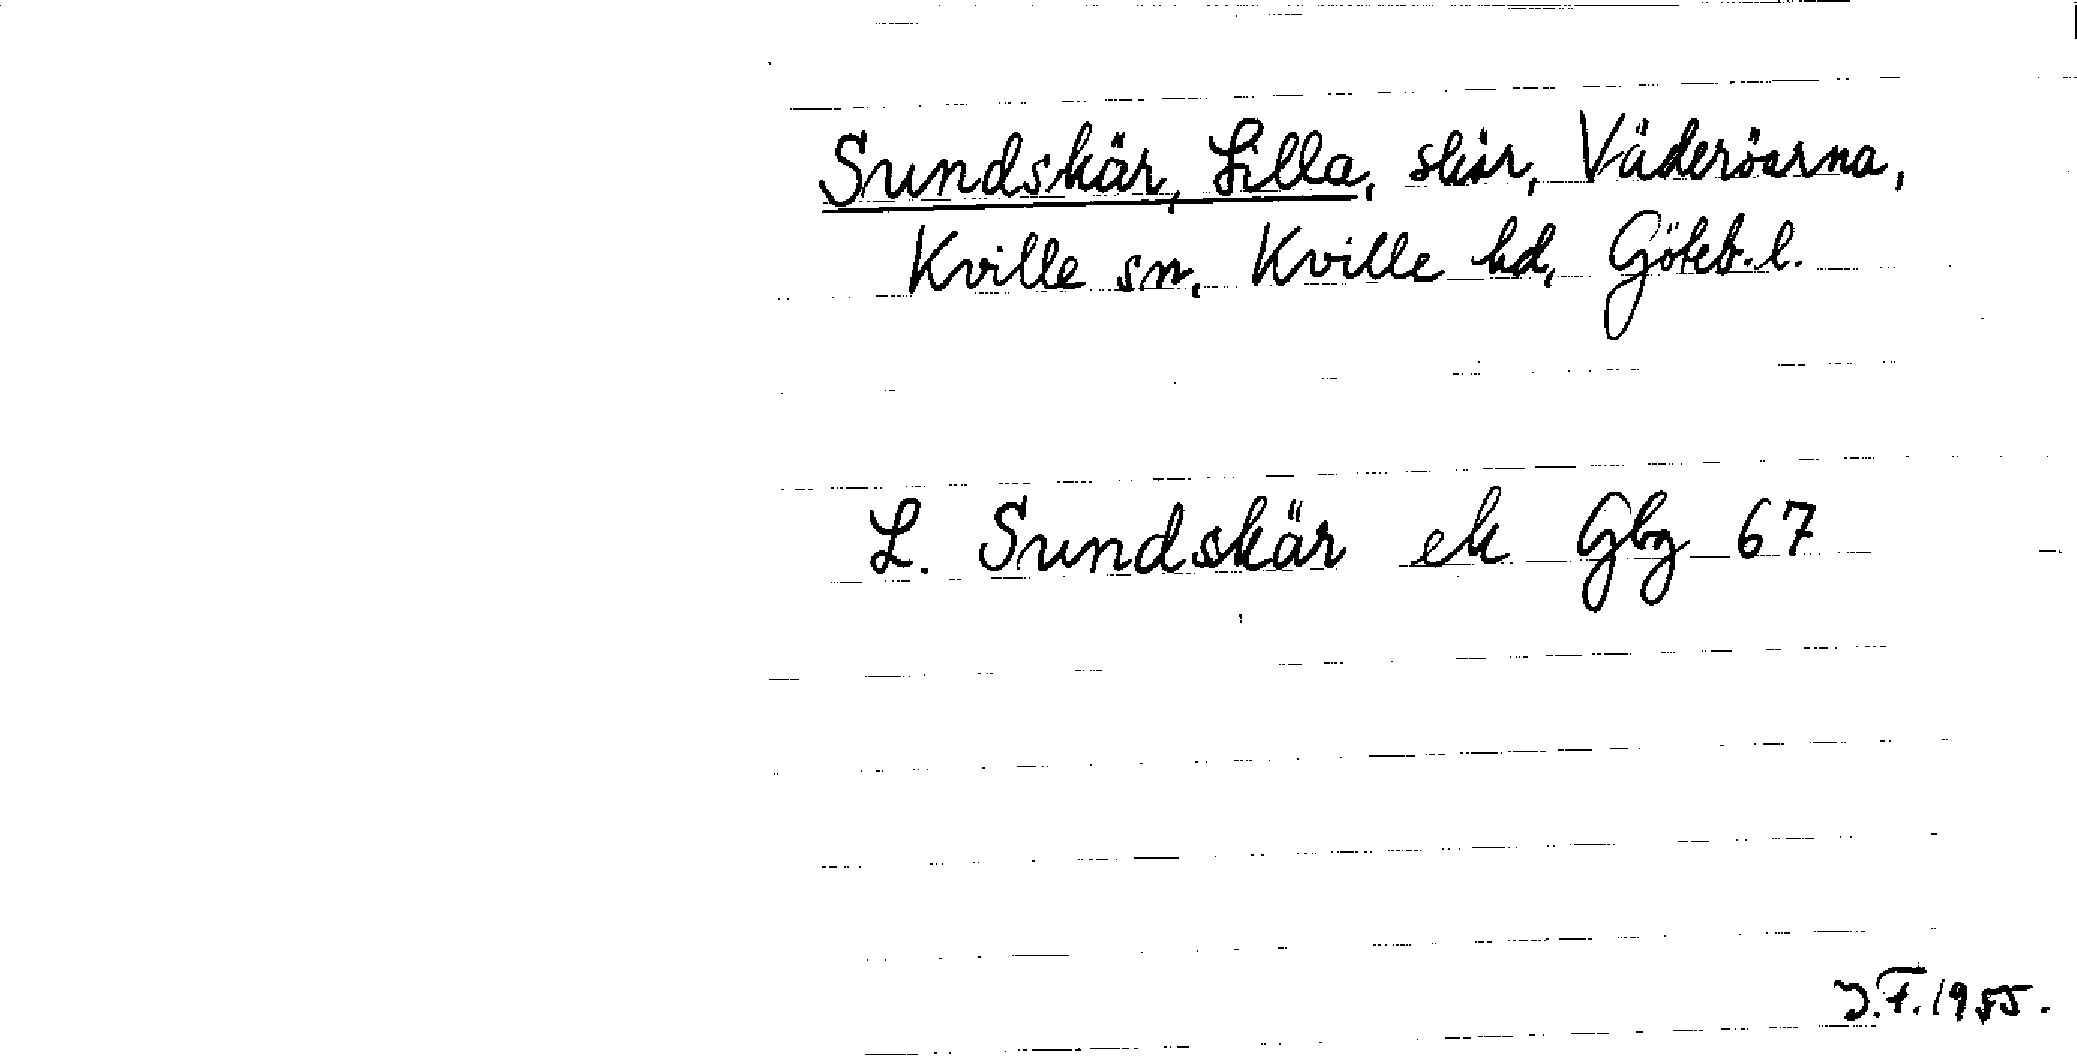 Sundskär, Lilla, skär, Väderöarna,
Kville sn, Kville hd, Göteb. l.
L. Sundskär ek Gbg 67
J.F. 1955.